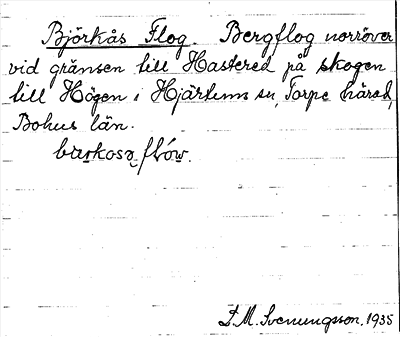 Björkås Flog. Bergflog norröver
vid gränsen till Hastered på skogen
till Högen i Hjärtums sn, Torpe härad,
Bohus län.
D.M. Svenungsson, 1935